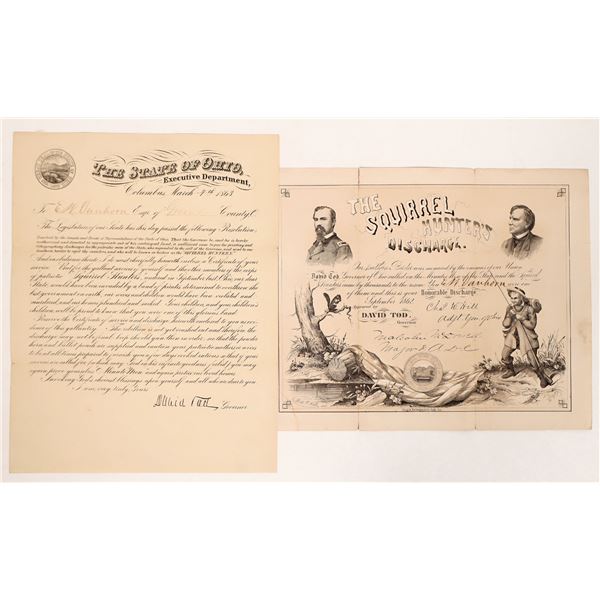 THE STATE OF OHIO,
Executive Department,
Columbus March 4th 1863
To E. W. Vanhorn Esqr of County, O
The Legislature of our State has this day passed the following Resolution,
Resolved by the Senate and House of Representatives of the State of Ohio, That the Governor be and he is hereby
authorized and directed to appropriate out of his contingent fund, a sufficient sum to pay for printing and
lithographing discharges for the patriotic men of the State, who responded to the call of the Governor, and went to our
Southern border to repel the invaders, and who will be known in history as the "SQUIRREL HUNTERS."
And in obedience thereto I do most cheerfully herewith enclose a Certificate of your
service. But for the gallant services of yourself and the other members of the corps
of patriotic Squirrel Hunters, rendered in September last, Ohio, our dear
State, would have been invaded by a band of pirates determined to overthrow the
best government on earth, our wives and children would have been violated and
murdered, and our homes plundered and sacked. Your children, and your children's
children, will be proud to know that you were one of this glorious band.
Preserve the Certificate of service and discharge herewith enclosed to you as evi-
dence of this gallantry. The rebellion is not yet crushed out and therefore the
discharge may not be final; keep the old gun then in order, see that the powder
horn and bullet pouch are supplied, and caution your patriotic mothers or wives
to be at all times prepared to furnish you a few days cooked rations so that if your
services are called for
again prove yourselves "Minute Men" and again protect our loved homes.
Invoking God's choicest blessings upon yourself and all who are dear to you
I am, very truly, Yours
David Tod
Governor
THE
SQUIRREL
HUNTER'S
DISCHARGE.
Our Southern Border was menaced by the enemies of our Union
David Tod, Governor of Ohio called on the Minute Men of the State and the Squirrel
Hunters came by thousands to the rescue. You E W Vanhorn were one
of them and this is your Honorable Discharge
September 1862.
Approved by
DAVID TOD.
Governor
Chas. W. Hill
Adjt. Gen. of Ohio
Malcolm McDowell
Major & A.D.C.